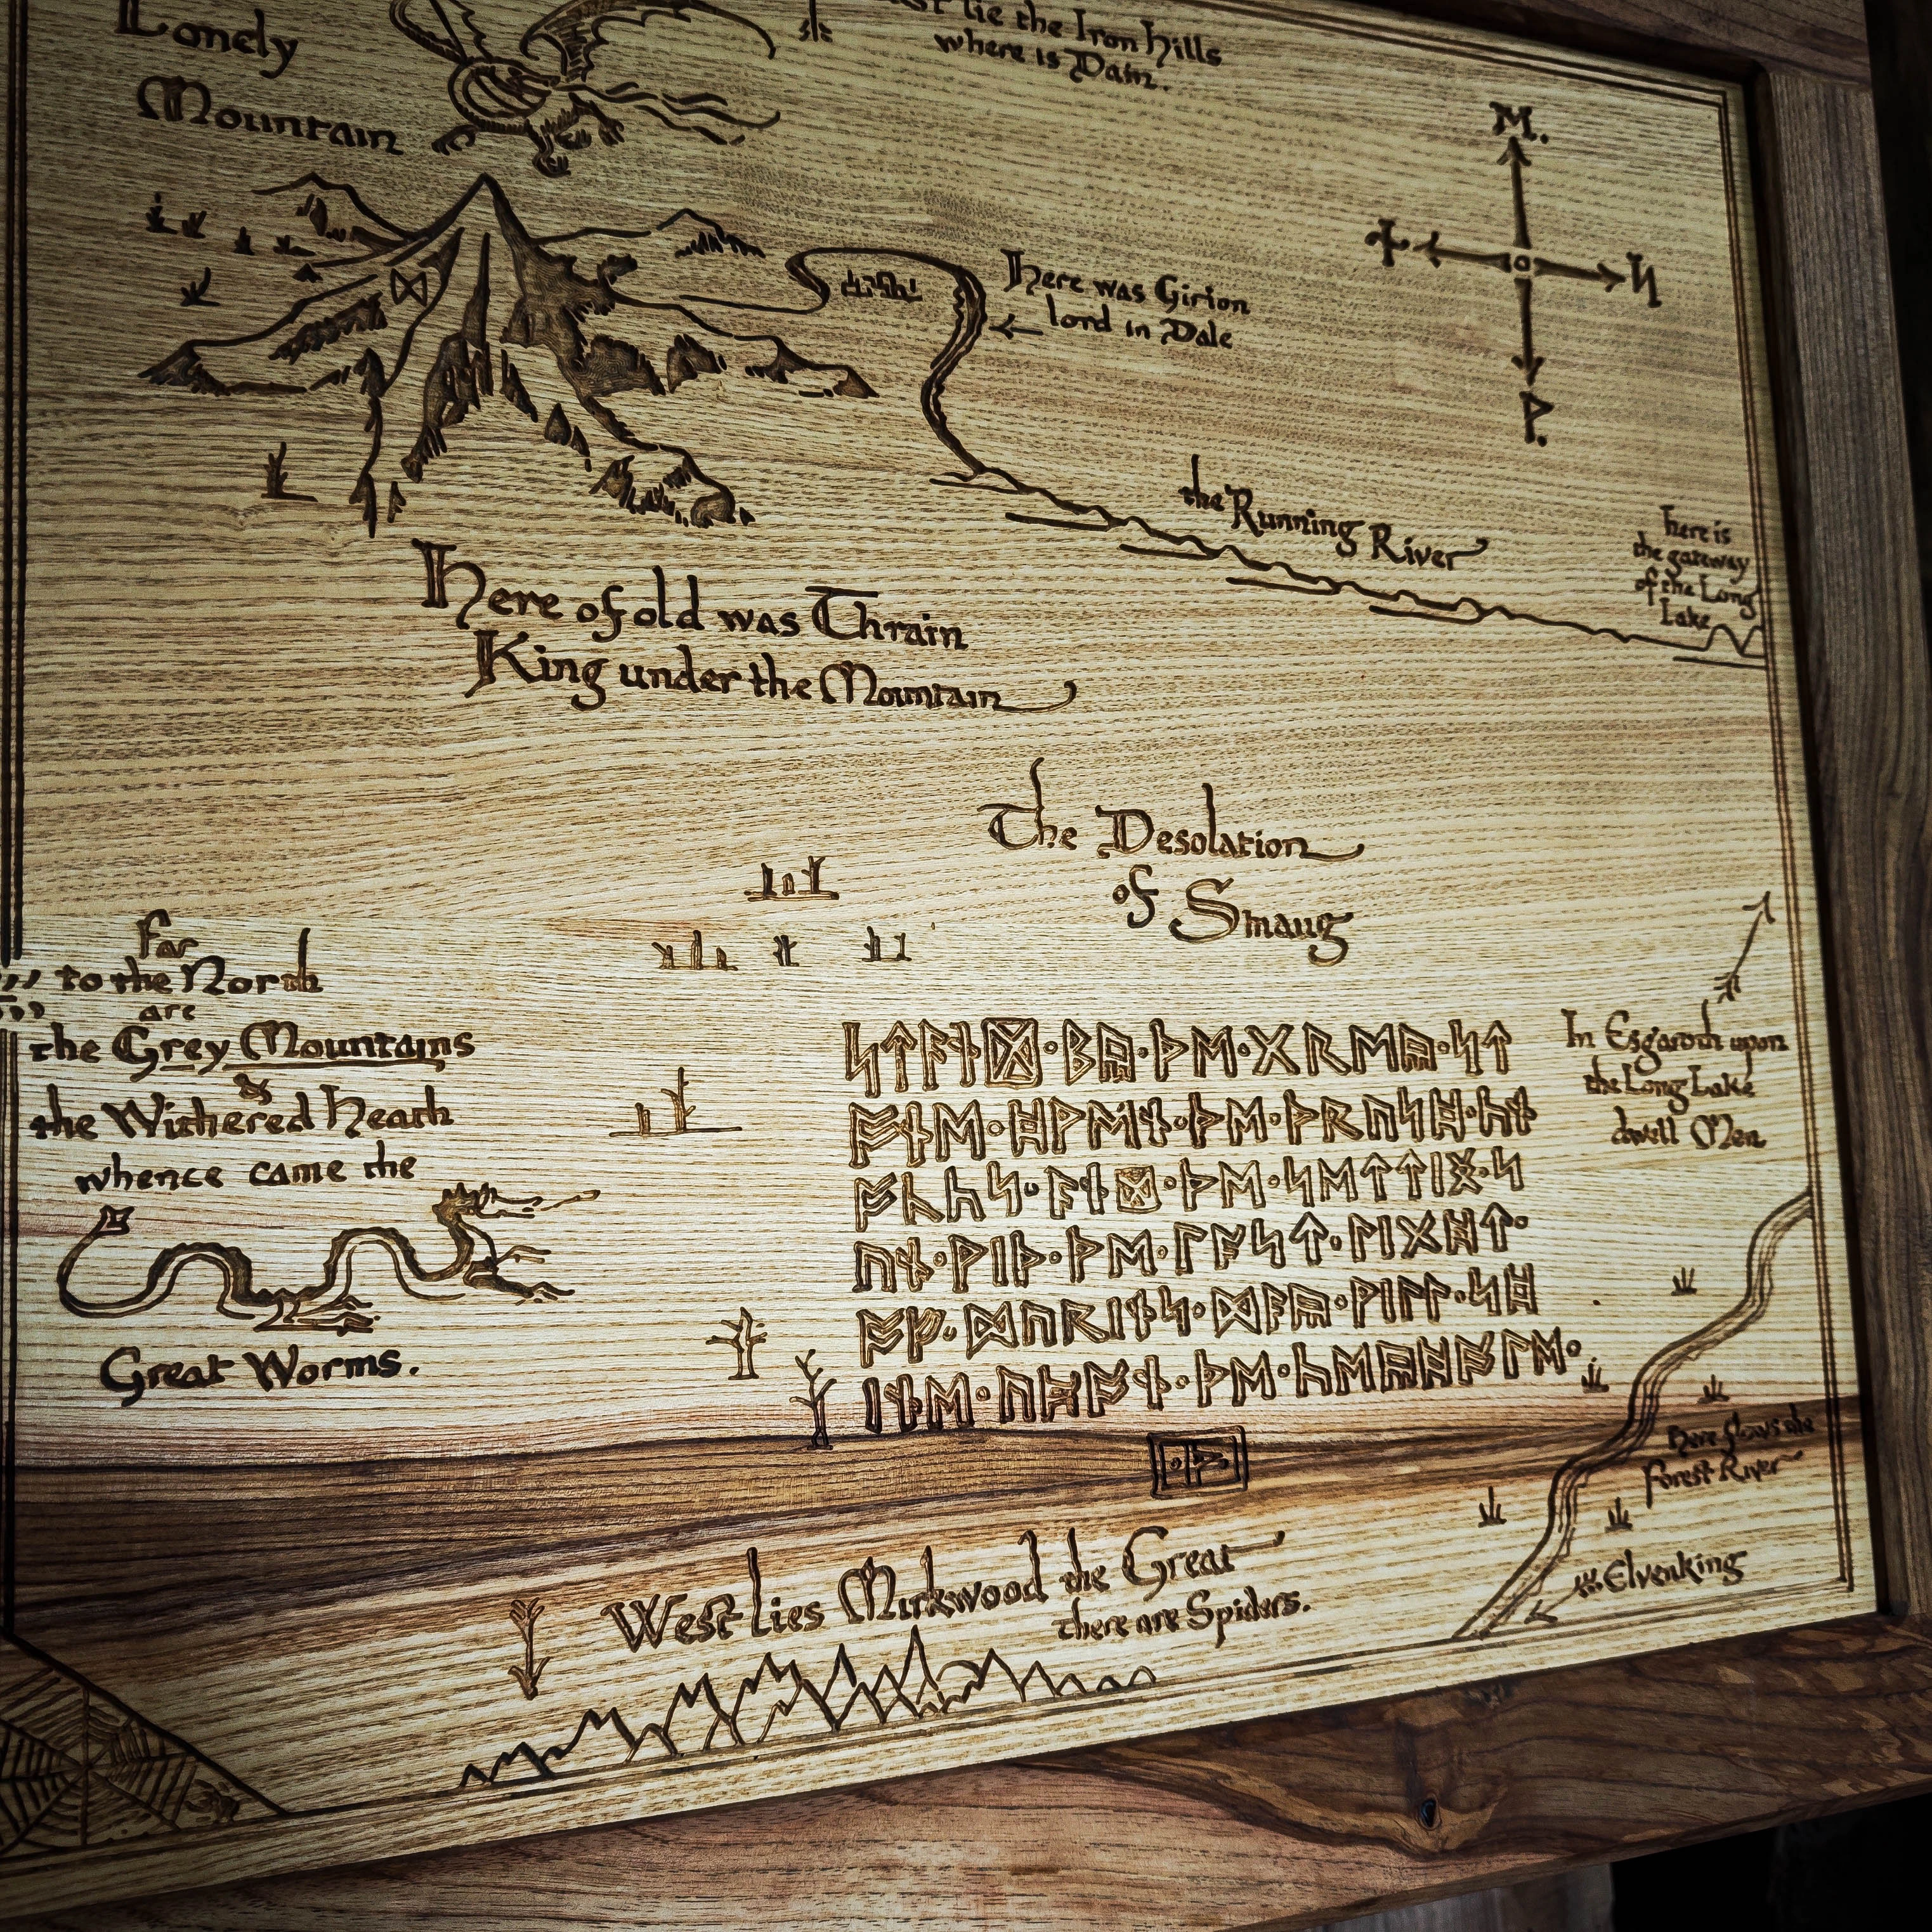 Lonely
Mountain
lie the Iron Hills
where is Dain.
ᛖ.
ᚾ
ᛋ
ᚹ.
ᛞ
Here was Girion
lord in Dale
the Running River
here is
the gateway
of the Long
Lake
Here of old was Thrain
King under the Mountain
The Desolation
of Smaug
Far
to the North
are
the Grey Mountains
&
the Withered Heath
whence came the
Great Worms.
ᛋᛏᚪᚾᛞ᛫ᛒᚣ᛫ᚦᛖ᛫ᚷᚱᛖᚣ᛫ᛋᛏ
ᚩᚾᛖ᛫ᚻᚹᛖᚾ᛫ᚦᛖ᛫ᚦᚱᚢᛋᚻ᛫ᚳᚾ
ᚩᚳᚳᛋ᛫ᚪᚾᛞ᛫ᚦᛖ᛫ᛋᛖᛏᛏᛁᛝ᛫ᛋ
ᚢᚾ᛫ᚹᛁᚦ᛫ᚦᛖ᛫ᛚᚪᛋᛏ᛫ᛚᛁᚷᚻᛏ᛫
ᚩᚠ᛫ᛞᚢᚱᛁᚾᛋ᛫ᛞᚪᚣ᛫ᚹᛁᛚᛚ᛫ᛋᚻ
ᛁᚾᛖ᛫ᚢᛈᚩᚾ᛫ᚦᛖ᛫ᚳᛖᚣᚻᚩᛚᛖ᛫
᛫ᚦ᛫
In Esgaroth upon
the Long Lake
dwell Men
here flows the
Forest River
Elvenking
West lies Mirkwood the Great
there are Spiders.